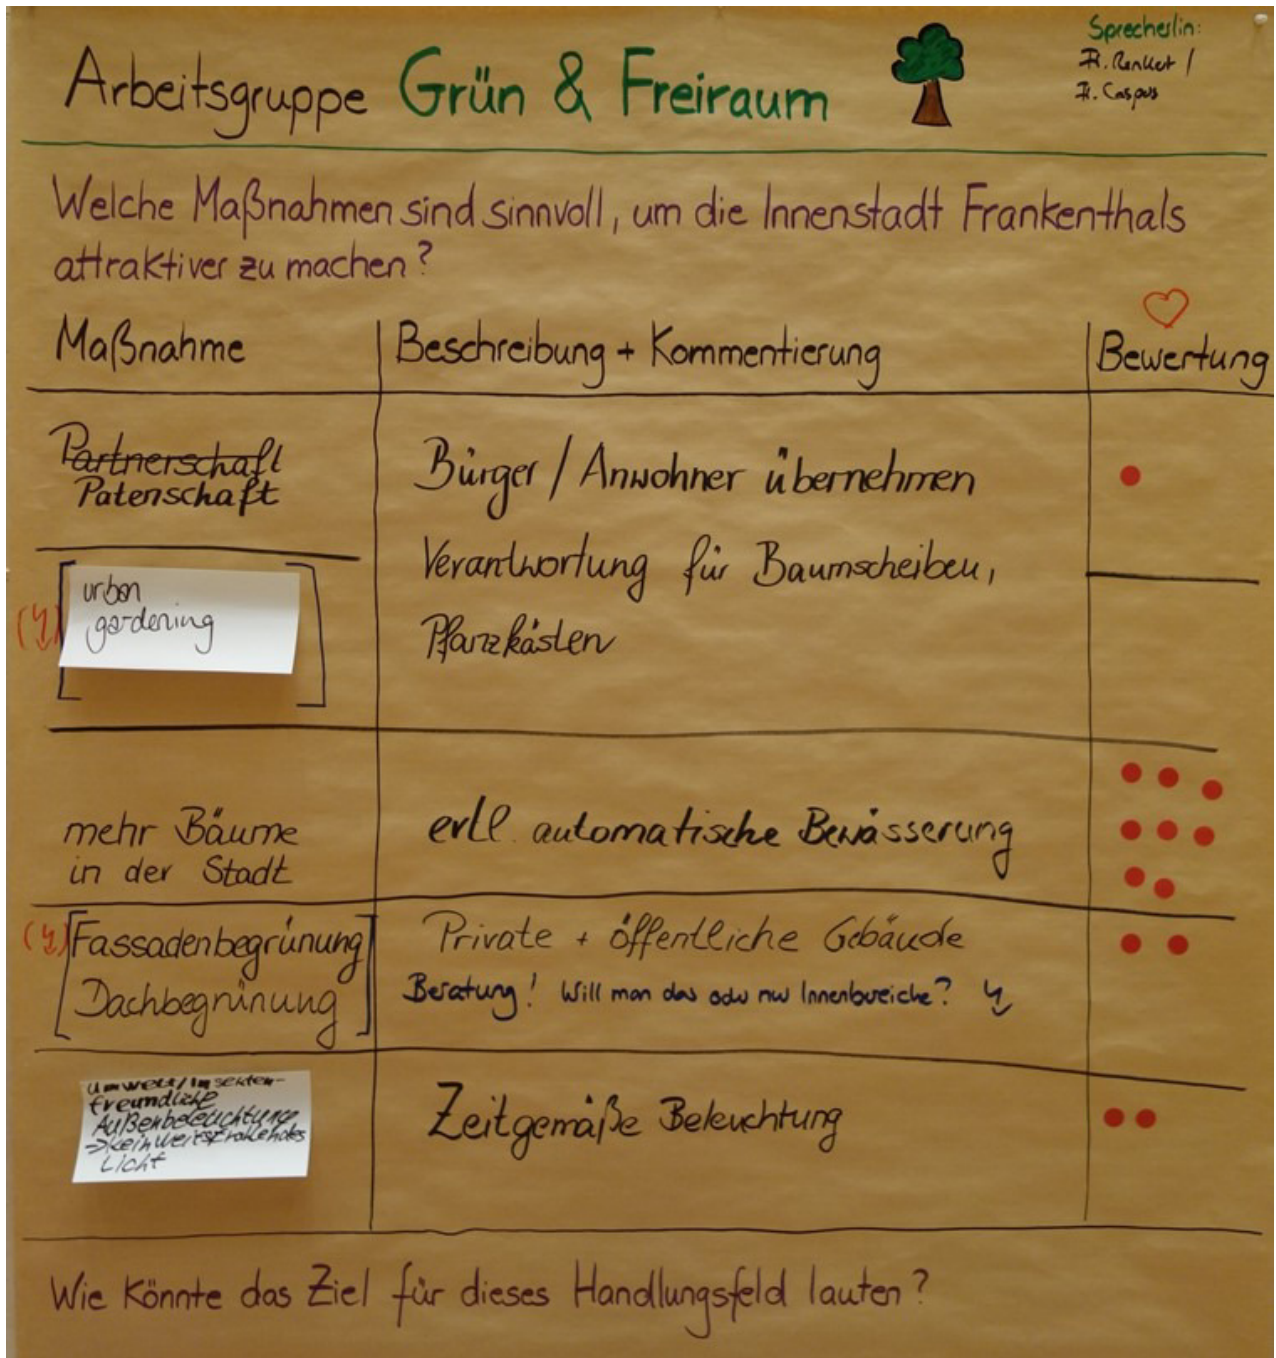 Arbeitsgruppe Grün & Freiraum
Sprecher/in:
Fr. Renkert /
Fr. Caspus
Welche Maßnahmen sind sinnvoll, um die Innenstadt Frankenthals
attraktiver zu machen?
Maßnahme
Beschreibung + Kommentierung
Bewertung
Partnerschaft
Patenschaft
Bürger / Anwohner übernehmen
Verantwortung für Baumscheiben,
Pflanzkästen
urban
gardening
mehr Bäume
in der Stadt
evtl. automatische Bewässerung
Fassadenbegrünung
Dachbegrünung
Private + öffentliche Gebäude
Beratung! Will man das oder nur Innenbereiche?
umwelt/insekten-
freundliche
Außenbeleuchtung
→ kein weitstrahlendes
Licht
Zeitgemäße Beleuchtung
Wie könnte das Ziel für dieses Handlungsfeld lauten?